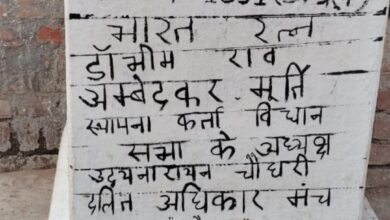 भारत रत्न
डॉ भीम राव
अम्बेदकर मूर्ति
स्थापना कर्ता विधान
सभा के अध्यक्ष
उदयनारायन चौधरी
दलित अधिकार मंच